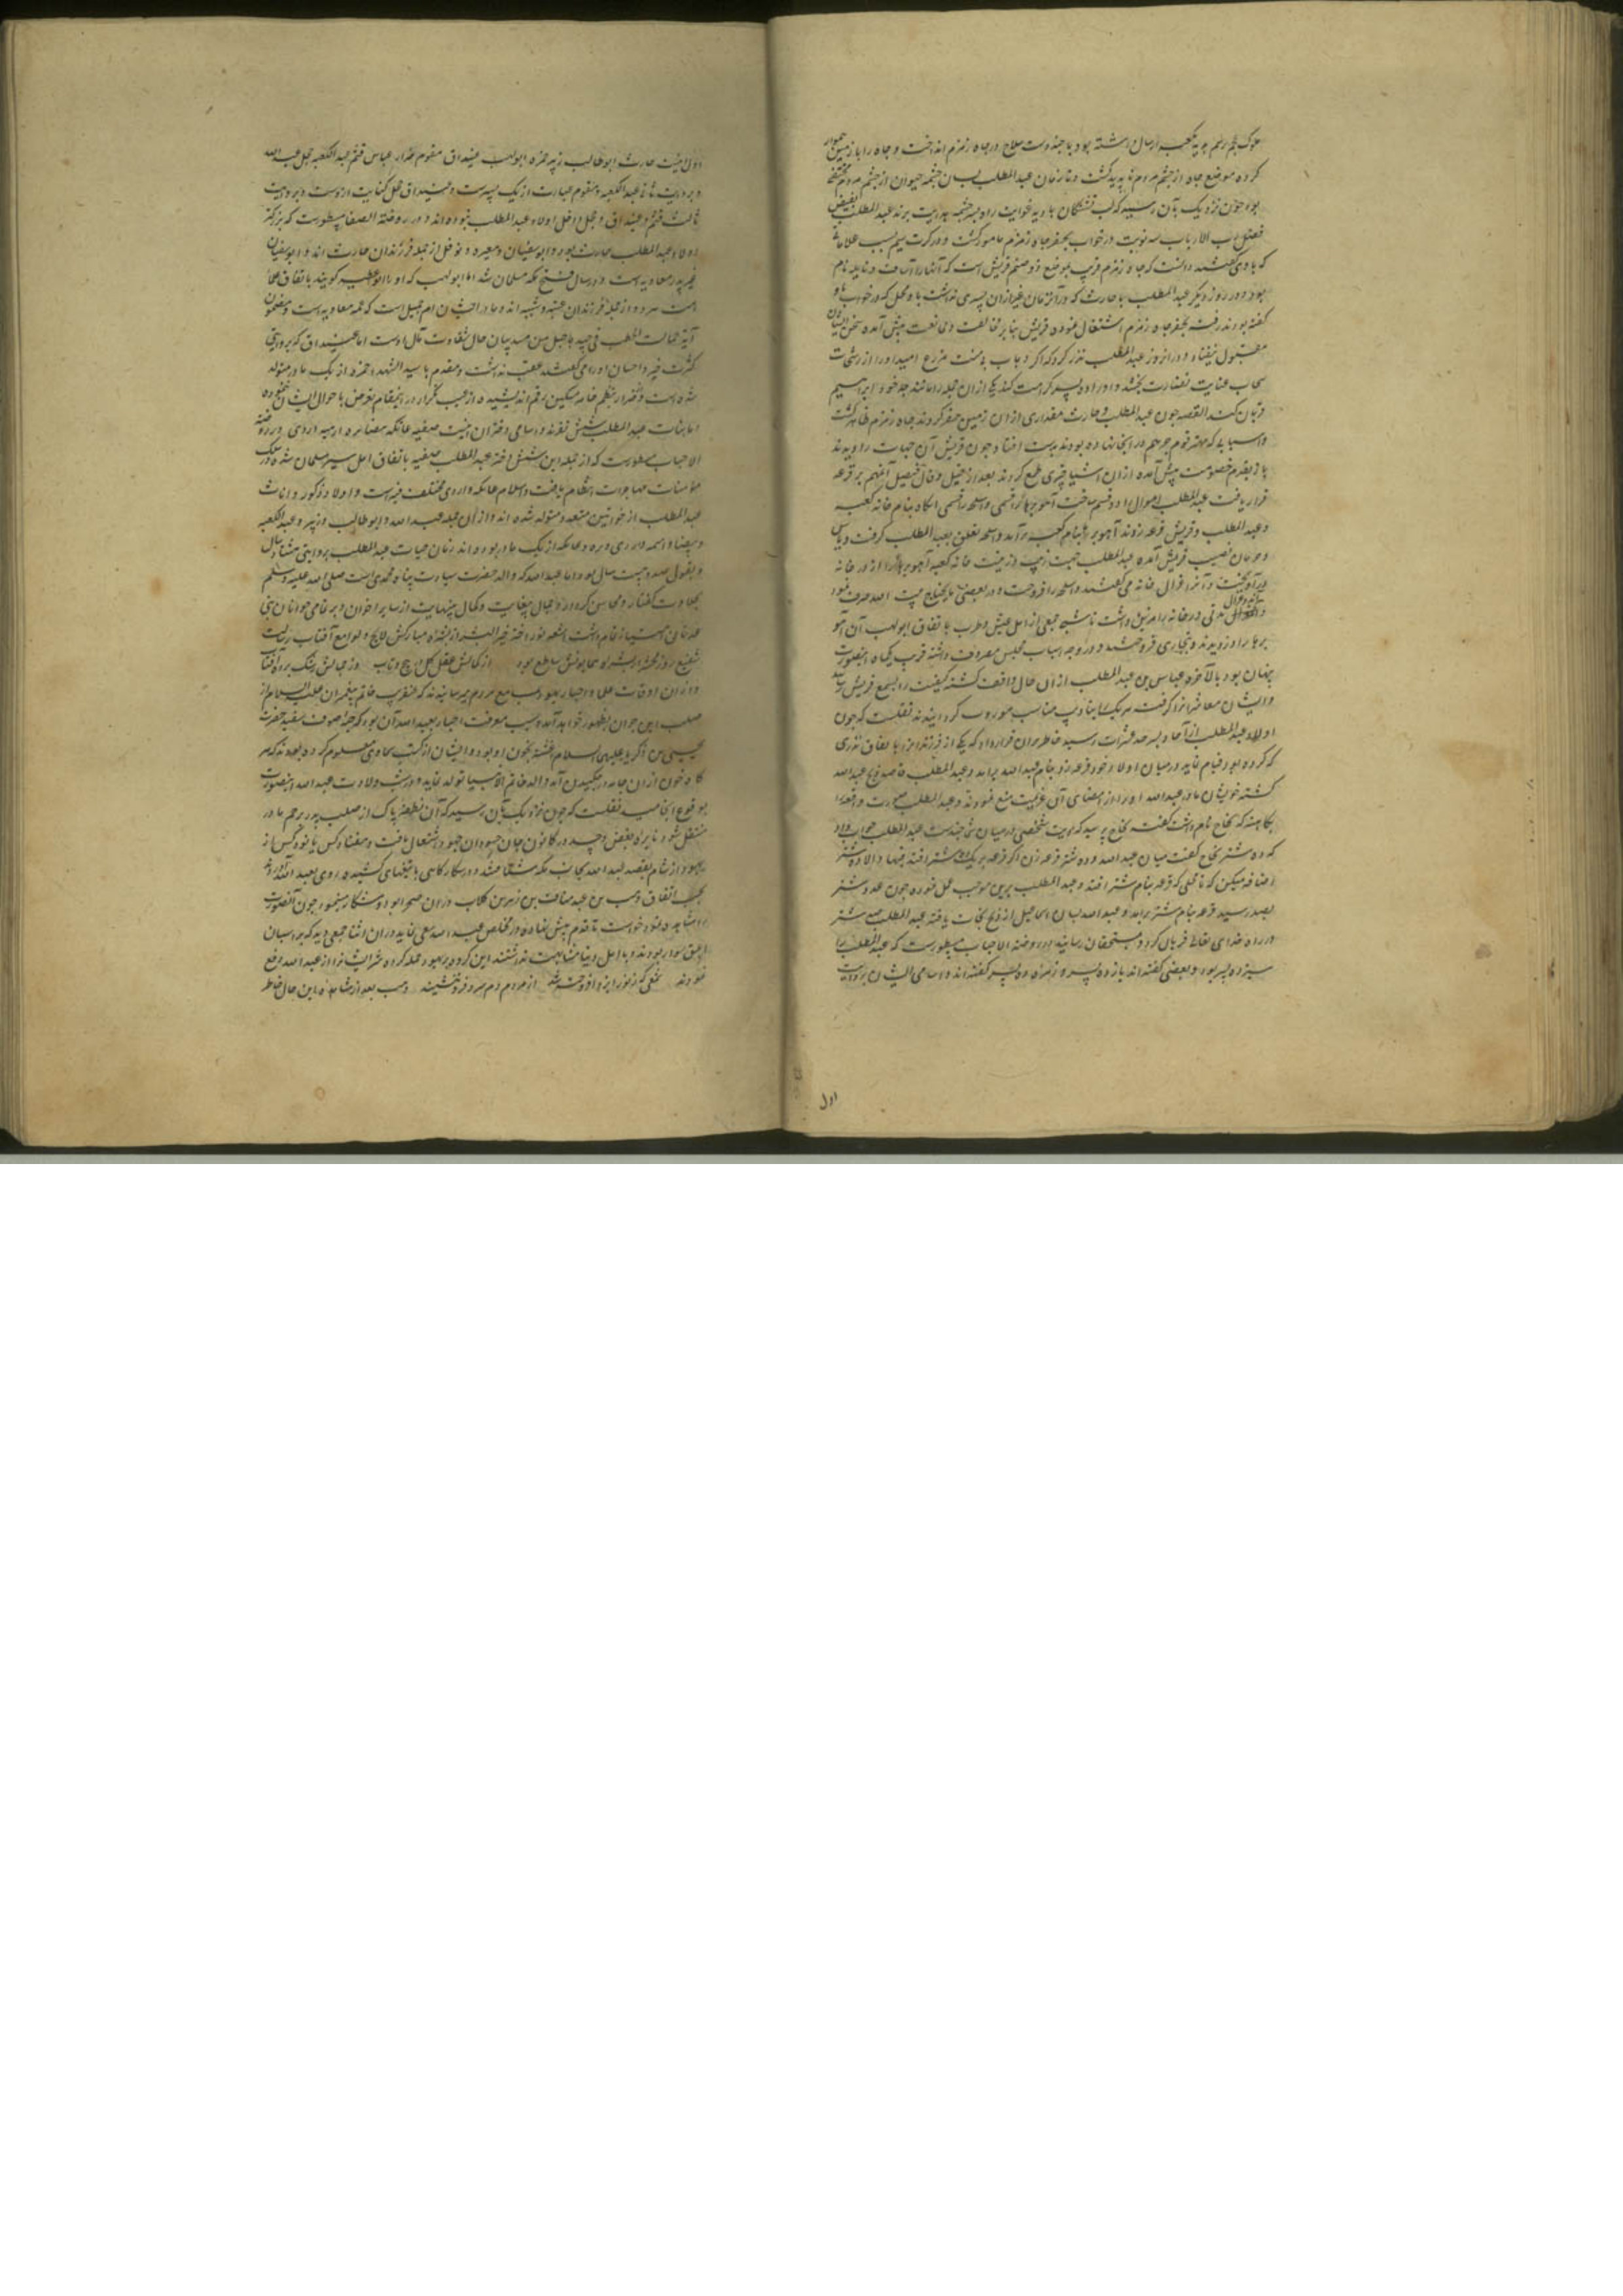 کرده موضع چاه از چشم مردم ناپدید گشت و تا زمان عبدالمطلب بسان چشمه حیوان از چشم مردم
بود چون نزدیک بآن رسید که لب تشنگان بادیه غوایت را به سرچشمه هدایت برند عبدالمطلب
رب الارباب سه نوبت در خواب بحفر چاه زمزم مامور گشت و در کرت سیم بسبب علاماتی
که با وی گفتند دانست که چاه زمزم قریب بموضع دو صنم قریش است که آنها را اساف و نایله نام
بود و در روز دیگر عبدالمطلب با حارث که در آن زمان غیر از آن پسری نداشت بان محل که در خواب باو
گفته بودند رفته بحفر چاه زمزم اشتغال نموده قریش بنابر مخالفت و ممانعت پیش آمده سخن ایشان
مقبول نیفتاد و در آن روز عبدالمطلب نذر کرد که اگر وهاب بی منت مزرع امید او را از رشحات
سحاب عنایت نضارت بخشد و او را ده پسر کرامت کند یکی از آن جمله را مانند جد خود ابراهیم
قربان کند القصه چون عبدالمطلب و حارث مقداری از آن زمین حفر کردند چاه زمزم ظاهر گشت
و اسبابی که مهتر قوم جرهم در آنجا نهاده بودند بدست افتاد و چون قریش آن جهات را دیدند
باز بقدم خصومت پیش آمده از آن اشیا چیزی طمع کردند بعد از قیل و قال فیصل آن مهم بر قرعه
قرار یافت عبدالمطلب اموال را دو قسم ساخت آهو برها را قسمی و اسلحه را قسمی آنگاه بنام خانه کعبه
و عبدالمطلب و قریش قرعه زدند آهو برها بنام کعبه برآمد و اسلحه تعلق بعبدالمطلب گرفت و یاس
و حرمان نصیب قریش آمده عبدالمطلب جهت زیب و زینت خانه کعبه آهو برها را از در خانه
در آویخت و آنرا غزال خانه می گفتند و اسلحه را فروخت و در بعضی مایحتاج بیت الله صرف نمود
مدتی در خانه بر آن منوال داشت تا شبی جمعی از اهل عیش و طرب با تفاق ابولهب آن آهو
برها را دزدیدند و بتجاری فروختند و در وجه اسباب مجلس مصروف داشته قریب یکماه این صورت
پنهان بود بالآخره عباس بن عبدالمطلب از آن حال واقف گشته کیفیت را بسمع قریش رساند
اولاد عبدالمطلب از آحاد بسر حد عشرات رسید خاطر بر آن قرار داد که یکی از فرزندان را با نفاق نذری
که کرده بود قیام نماید در میان اولاد خود قرعه زد بنام عبدالله برآمد و عبدالمطلب قاصد ذبح عبدالله
گشته خویشان مادر عبدالله او را از امضای آن عزیمت منع نمودند و عبدالمطلب صورت واقعه را
بکاهنه که سجاح نام داشت گفت سجاح پرسید که دیت شخصی در میان شما چندست عبدالمطلب جواب داد
که ده شتر سجاح گفت میان عبدالله و ده شتر قرعه زن اگر قرعه بر شتر افتد فبها و الا ده شتر
اضافه میکن که تا محلی که قرعه بنام شتر افتد و عبدالمطلب برین موجب عمل نموده چون عدد شتر
بصد رسید قرعه بنام شتر برآمد و عبدالله بسان اسماعیل از ذبح نجات یافته عبدالمطلب صد شتر
در راه خدای تعالی قربان کرد و بمستحقان رسانید و در روضة الاحباب مسطورست که عبدالمطلب را
سیزده پسر بود و بعضی گفته اند یازده پسر و زمره ده پسر گفته اند و اسامی ایشان بروایت
اول
اول اینست حارث ابوطالب زبیر حمزه ابولهب غیداق مقوم ضرار عباس قثم عبدالکعبه جحل عبدالله
و بروایت ثانی عبدالکعبه و مقوم عبارت از یک پسرست و غیداق و جحل کنایت از اوست و بروایت
ثالث قثم و غیداق و جحل داخل اولاد عبدالمطلب نبوده اند و در روضة الصفا مسطورست که بزرگتر
اولاد عبدالمطلب حارث بود و ابوسفیان و مغیره و نوفل از جمله فرزندان حارث اند و ابوسفیان
غیر پدر معاویه است و در سال فتح مکه مسلمان شد اما ابولهب که او را ابوعتیبه گویند باتفاق علما
مرد و از جمله فرزندان عتبه و شیبه اند و مادر ایشان ام جمیل است که عمه معاویه است و مضمون
آیه حمالة الحطب فی جیدها حبل من مسد بیان حال شقاوت مآل اوست اما غیداق که بروایتی
کثرت خیر و احسان او را می گفتند عقب نداشت و مقوم با سید الشهدا حمزه از یک مادر متولد
اما بنات عبدالمطلب شش نفرند و اسامی دختران اینست صفیه عاتکه بیضا بره امیمه اروی و در روضة
الاحباب مسطورست که از جمله این شش دختر عبدالمطلب صفیه باتفاق اهل سیر مسلمان شده در سلک
مؤمنات مهاجرات انتظام یافت و اسلام عاتکه و اروی مختلف فیه است و اولاد ذکور و اناث
عبدالمطلب از خواتین متعدد متولد شده اند و از آن جمله عبدالله و ابوطالب و زبیر و عبدالکعبه
و بیضا و امیمه و اروی و بره و عاتکه از یک مادر بوده اند زمان حیات عبدالمطلب بروایتی هشتاد سال
و بقول صد و بیست سال بود و اما عبدالله که والد حضرت رسالت پناه محمدی است صلی الله علیه و سلم
بحلاوت گفتار و محاسن کردار و جمال بیغایت و کمال بینهایت از سایر اخوان و بر تمامی جوانان بنی
شفیع روز محشر از بشره همایونش ساطع بود
صلب این جوان بظهور خواهد آمد و سبب معرفت احبار بعبدالله آن بود که جبه صوف سفید حضرت
یحیی بن زکریا علیهما السلام آغشته بخون او بود و ایشان از کتب سماوی معلوم کرده بودند که هر
گاه خون از آن جامه در چکیدن آید والد خاتم الانبیا تولد نماید و در شب ولادت عبدالله این صورت
بوقوع انجامید نقلست که چون نزدیک بآن رسید که آن نطفه پاک از صلب پدر برحم مادر
منتقل شود نایره بغض و حسد در کانون جان حسودان جهود اشتعال یافت و هفتاد کس یا نود کس از
یهود از شام بقصد عبدالله بجانب مکه شتافتند و در شکارگاهی با تیغهای کشیده روی بعبدالله آوردند
بحسب اتفاق وهب بن عبدمناف بن زهره بن کلاب در آن صحرا بود و شکار مینمود چون آن صورت را
مشاهده نمود خواست تا قدم پیش نهاده در تخلص عبدالله سعی نماید در آن اثنا جمعی دید که بر اسبان
ابلق سوار بودند و باهل دنیا مشابهت نداشتند این گروه بر یهود حمله کرده شر ایشان را از عبدالله دفع
نمودند